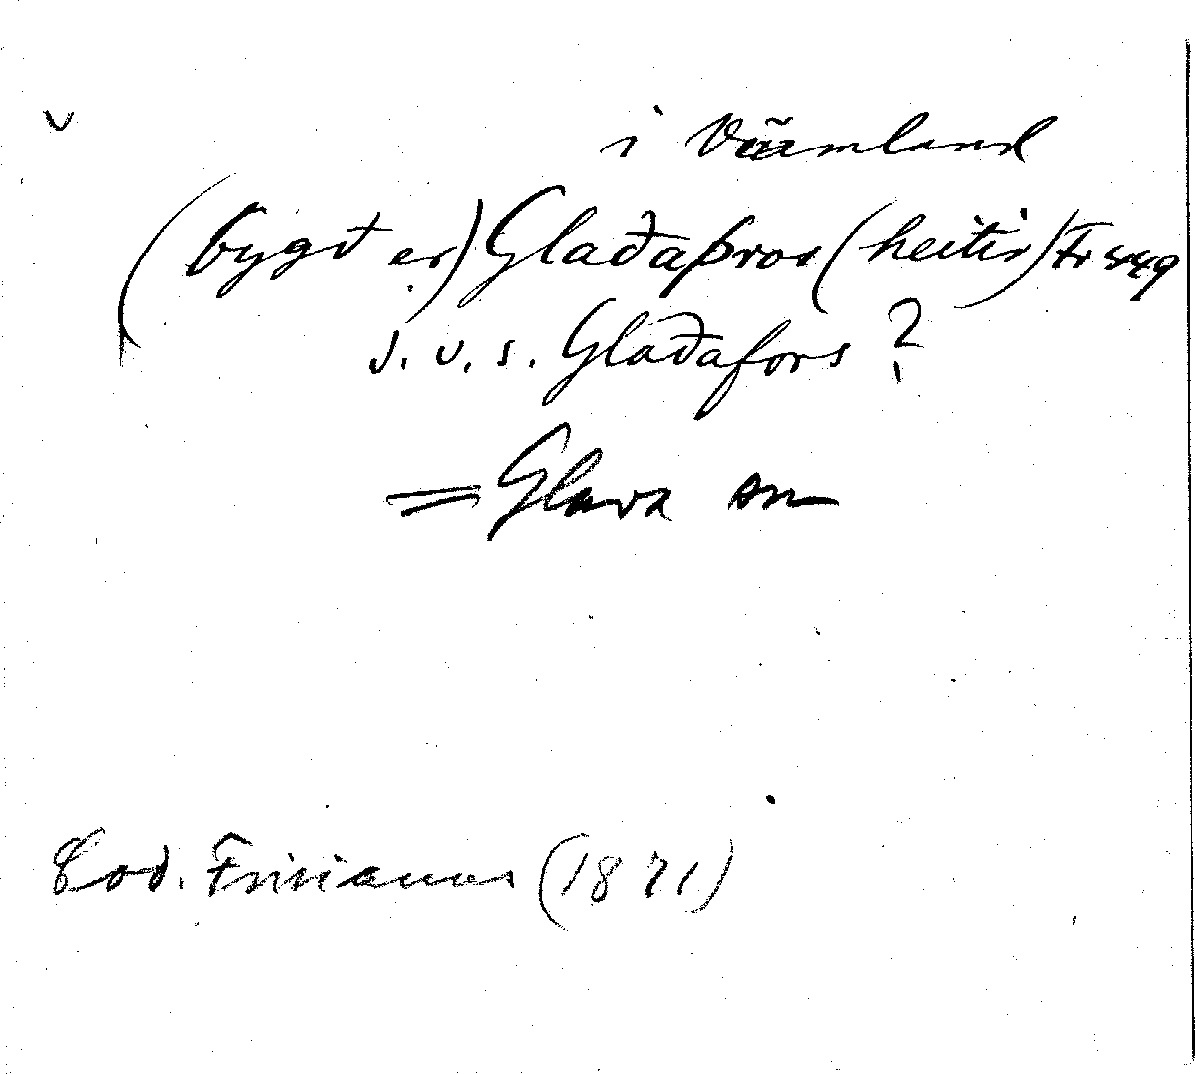 i Värmland
(bygð er) Glaðaþros (heitir) Fr 349
J. v. s. Glaðafors?
= Glava sn
Cod. Frisianus (1871)